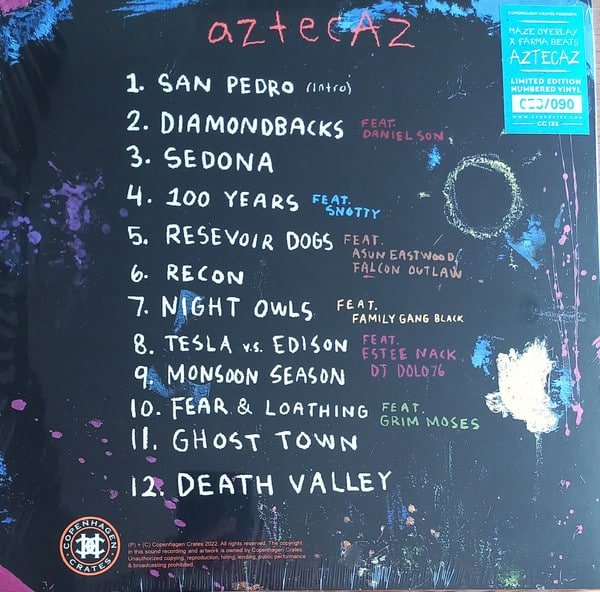 aztecAZ
1. SAN PEDRO (Intro)
2. DIAMONDBACKS FEAT. DANIEL SON
3. SEDONA
4. 100 YEARS FEAT. SNOTTY
5. RESEVOIR DOGS FEAT. ASUN EASTWOOD, FALCON OUTLAW
6. RECON
7. NIGHT OWLS FEAT. FAMILY GANG BLACK
8. TESLA v.s. EDISON FEAT. ESTEE NACK DJ DOLO76
9. MONSOON SEASON
10. FEAR & LOATHING FEAT. GRIM MOSES
11. GHOST TOWN
12. DEATH VALLEY
COPENHAGEN CRATES PRESENTS
MAZE OVERLAY
X FARMA BEATS
AZTECAZ
LIMITED EDITION
NUMBERED VINYL
/090
COPENHAGEN CRATES
(P) + (C) Copenhagen Crates 2022. All rights reserved. The copyright
in this sound recording and artwork is owned by Copenhagen Crates.
Unauthorized copying, reproduction, hiring, lending, public performance
& broadcasting prohibited.